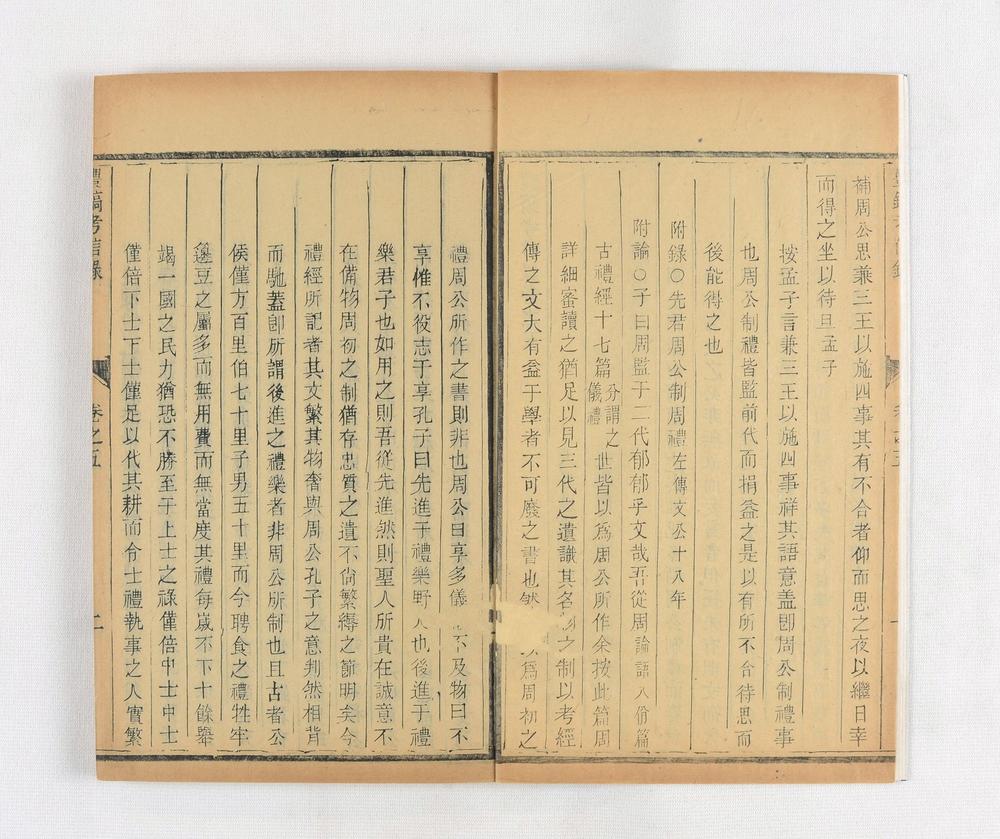 補周公思兼三王以施四事其有不合者仰而思之夜以繼日幸
而得之坐以待旦孟子
按孟子言兼三王以施四事祥其語意盖卽周公制禮事
也周公制禮皆監前代而損益之是以有所不合待思而
後能得之也
附錄○先君周公制周禮左傳文公十八年
附論○子曰周監于二代郁郁乎文哉吾從周論語八佾篇
古禮經十七篇今謂之儀禮世皆以爲周公所作余按此篇周
詳細蜜讀之猶足以見三代之遺識其名物之制以考經
傳之文大有益于學者不可廢之書也然以爲周初之
禮周公所作之書則非也周公曰享多儀不及物曰不
享惟不役志于享孔子曰先進于禮樂野人也後進于禮
樂君子也如用之則吾從先進然則聖人所貴在誠意不
在備物周初之制猶存忠質之遺不尙繁縟之節明矣今
禮經所記者其文繁其物奢與周公孔子之意判然相背
而馳蓋卽所謂後進之禮樂者非周公所制也且古者公
侯僅方百里伯七十里子男五十里而今聘食之禮牲牢
籩豆之屬多而無用費而無當度其禮每歲不下十餘舉
竭一國之民力猶恐不勝至于上士之祿僅倍中士中士
僅倍下士下士僅足以代其耕而令士禮執事之人實繁
豐鎬考信錄
卷之五
二